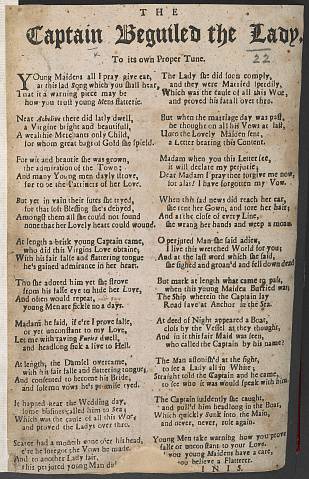 THE
Captain Beguiled the Lady,
To its own Proper Tune.
22
YOung Maidens all I pray give ear,
at this sad Song which you shall hear,
That it a warning piece may be
how you trust young Mens flatterie.
Near there did lady dwell,
a Virgine bright and beautifull,
A wealthie Merchants only Child,
for whom great bags of Gold she
For wit and beautie she was grown,
the admiration of the Town;
And many Young men dayly strove,
for to be the of her Love.
But yet in vain their sutes she eyed,
for that Blessing she's denyed,
Amongst them all she could not found
none that her Lovely heart could wound.
At length a brisk young Captain came,
who did this Virgins Love obtaine,
With his fair false and flattering tongue
he's gained admirance in her heart.
Tho she adored him yet she strove
from his false eye to hide her Love,
And often would repeat,
young Men are fickle no a days.
Madam he said, if e're I prove false,
or yet unconstant to my Love,
Let me with raving Furies dwell,
and headlong sink a live to Hell.
At length, the Damsel overcame,
with his fair false and flattering tongue,
And consented to become his Bride,
and solemn vows he's promise yed.
It hapned near the Wedding day,
some business called him to Sea;
Which was the cause of all this Woe,
and proved the Ladys over thro.
Scarce had a month gone o'er his head,
e're he forgot the Vows he made
And to another Lady fair,
this perjured young Man
The Lady she did soon comply,
and they were Married speedily,
Which was the cause of all this Woe,
and proved his fatall over thro.
But when the marriage day was past,
he thought on all his Vows at last,
Unto the Lovely Maiden sent,
a Letter bearing this Content.
Madam when you this Letter see,
it will declare my perjurie,
Dear Madam I pray thee forgive me now,
for alas! I have forgotten my Vow.
When this sad news did reach her ear,
she rent her Gown, and tore her hair,
And at the close of every Line,
she wrang her hands and weep a
O perjured Man she said adieu,
I live this wretched World for you;
And at the last word which she said,
she sighed and groan'd and fell down dead
But mark at length what came to pass,
when this young Maiden Burried was,
The Ship wherein the Captain lay
Road save at Anchor in the Sea.
At deed of Night appeared a Boat,
closs by the Vessel as they thought,
And in this fair Maid was seen,
who called the Captain by his name?
The Man astonish'd at the sight,
to see a Lady all in White,
Straight told the Captain and he came,
to see who it was would speak with him.
The Captain suddenly she caught,
and pull'd him headlong in the Boat,
Which quickly sunk into the Main,
and never, never, rose again.
Young Men take warning how you prove
false or unconstant to your Love.
you young Maidens have a care,
you believe a Flatterer.
INIS.